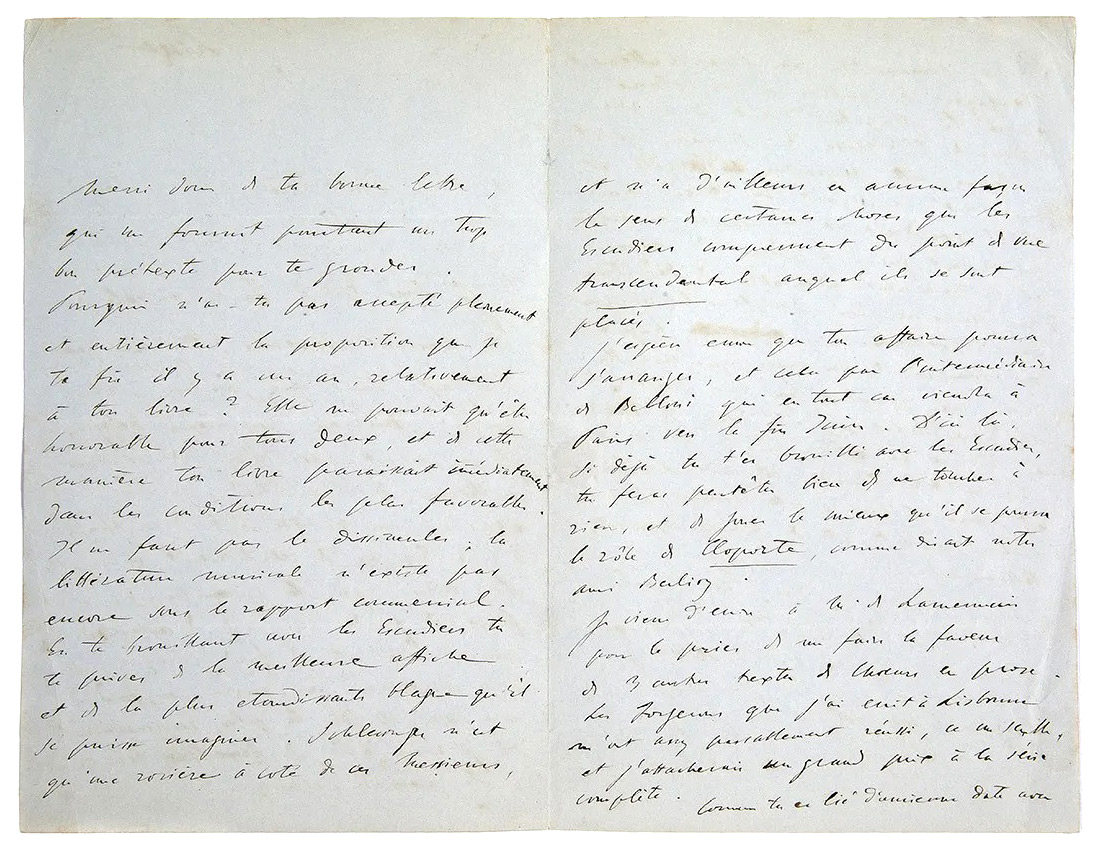 Merci donc de ta bonne lettre,
qui me fournit pourtant un trop
bon prétexte pour te gronder.
Pourquoi n'as-tu pas accepté pleinement
et entièrement la proposition que je
te fis il y a un an, relativement
à ton livre ? Elle ne pouvait qu'être
honorable pour tous deux, et de cette
manière ton livre paraissait immédiatement
dans les conditions les plus favorables.
Il ne faut pas le dissimuler, la
littérature musicale n'existe pas
encore sous le rapport commercial.
En te brouillant avec les Escudiers tu
te prives de la meilleure affiche
et de la plus etourdissante blague qu'il
se puisse imaginer. Schlesinger n'est
qu'une rosière à coté de ces Messieurs,
et n'a d'ailleurs en aucune façon
le sens de certaines choses que les
Escudiers comprennent du point de vue
transcendental auquel ils se sont
placés.
J'espère encore que ton affaire pourra
s'arranger, et cela par l'intermédiaire
de Belloni qui en tout cas viendra à
Paris vers la fin Juin. D'ici là,
si déjà tu t'es brouillé avec les Escudier,
tu feras peutêtre bien de ne toucher à
rien, et de jouer le mieux qu'il se pourra
le rôle de Cloporte, comme disait notre
ami Berlioz.
Je viens d'écrire à Mr de Lamennais
pour le prier de me faire la faveur
de 3 autres textes de Choeurs en prose.
Les Forgerons que j'ai écrit à Lisbonne
m'ont assez passablement réussi, ce me semble,
et j'attacherais un grand prix à la série
complète. Comme tu es lié d'ancienne date avec